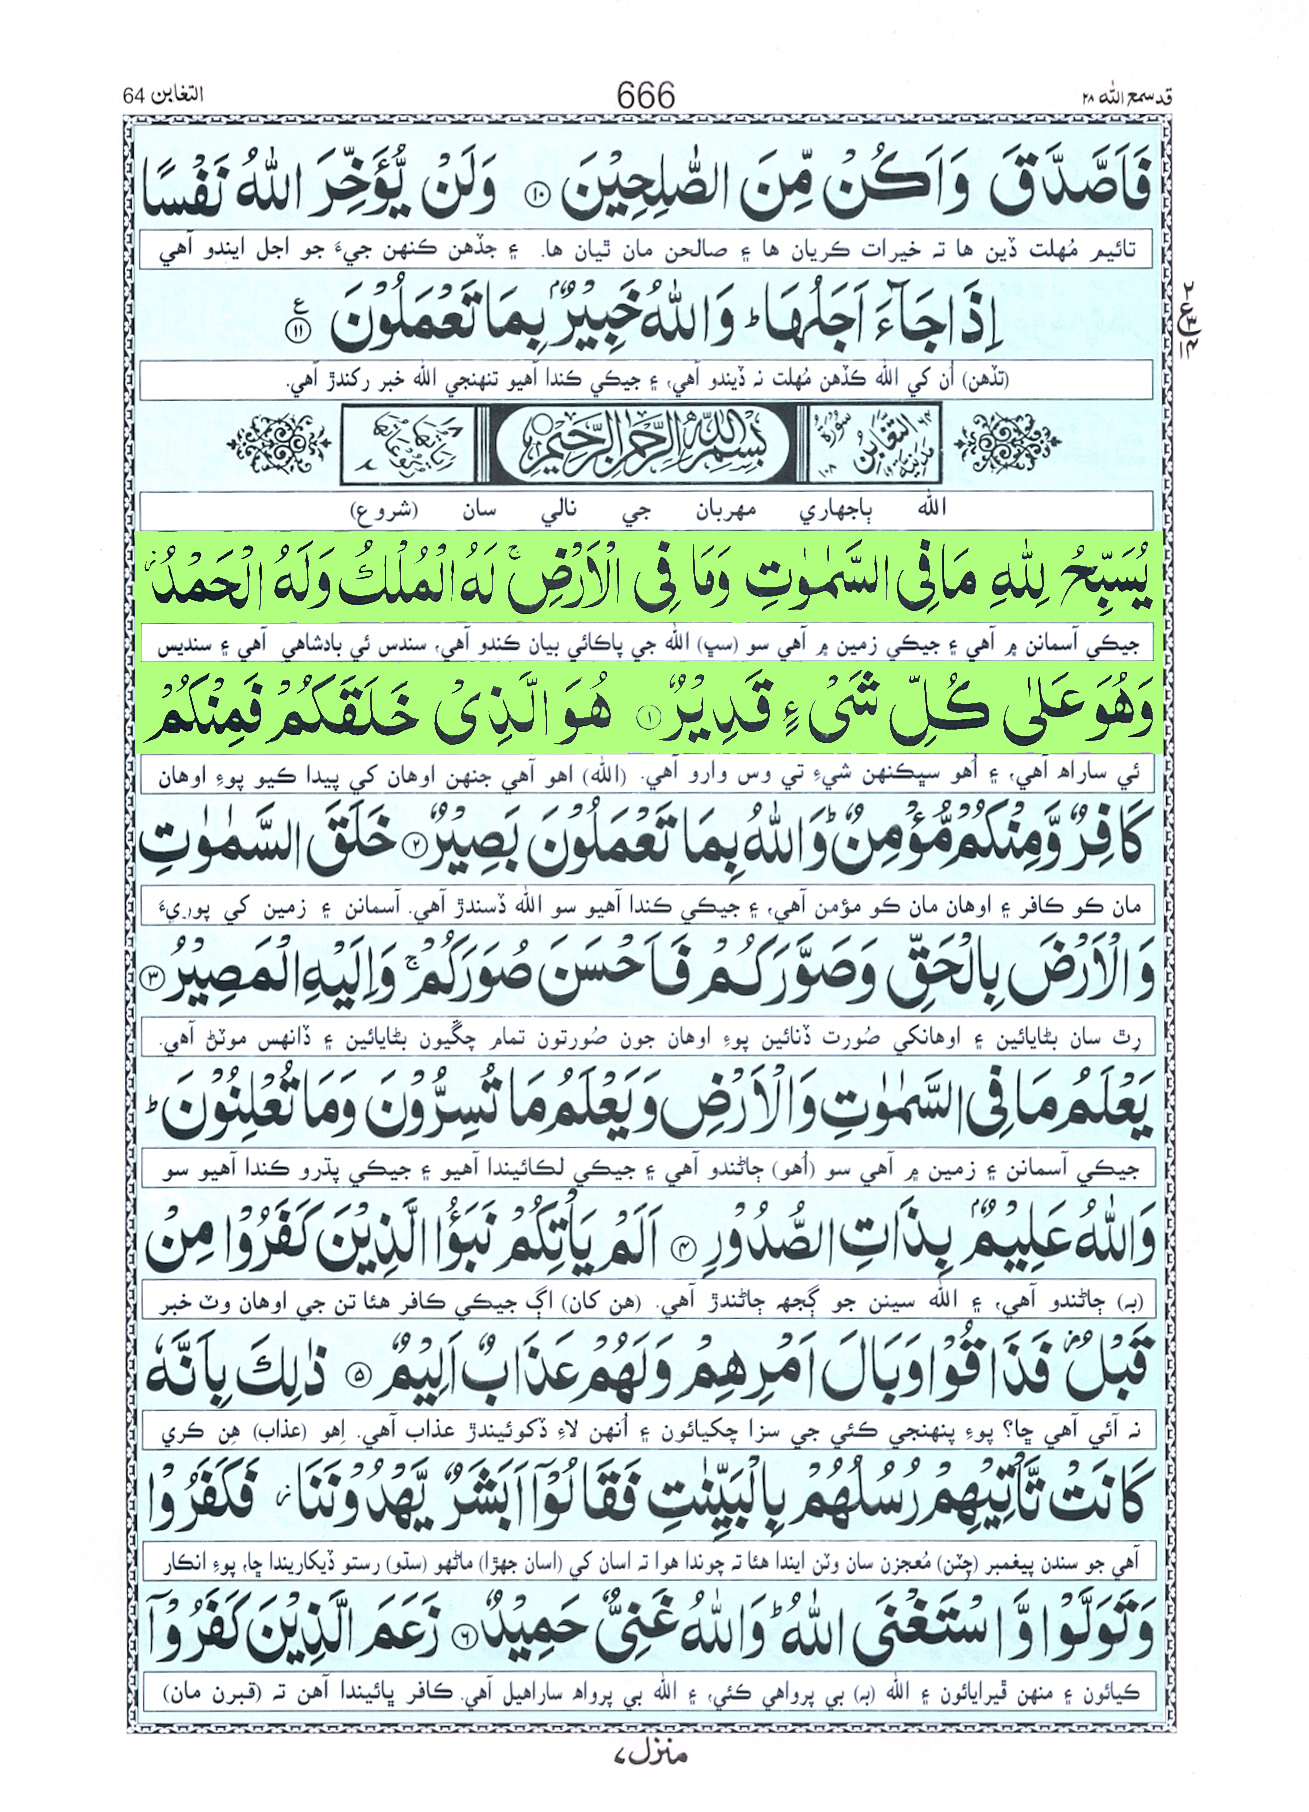 قد سمع الله ٢٨
666
التغابن 64
فَاَصَّدَّقَ وَاَكُنْ مِّنَ الصّٰلِحِيْنَ ١٠ وَلَنْ يُّؤَخِّرَ اللّٰهُ نَفْسًا
تائيم مُهلت ڏين ها تہ خيرات ڪريان ها ۽ صالحن مان ٿيان ها. ۽ جڏهن ڪنهن جيءَ جو اجل ايندو آهي
اِذَا جَآءَ اَجَلُهَا ؕ وَاللّٰهُ خَبِيْرٌۢ بِمَا تَعْمَلُوْنَ ١١ ع
(تڏهن) اُن کي الله ڪڏهن مُهلت نہ ڏيندو آهي، ۽ جيڪي ڪندا آهيو تنهنجي الله خبر رکندڙ آهي.
سورة التغابن مدنية ١٠٨ ٦٤
بسم الله الرحمن الرحيم
الله ٻاجهاري مهربان جي نالي سان (شروع)
يُسَبِّحُ لِلّٰهِ مَا فِى السَّمٰوٰتِ وَمَا فِى الْاَرْضِ ۚ لَهُ الْمُلْكُ وَلَهُ الْحَمْدُ ؗ
جيڪي آسمانن ۾ آهي ۽ جيڪي زمين ۾ آهي سو (سڀ) الله جي پاڪائي بيان ڪندو آهي، سندس ئي بادشاهي آهي ۽ سنديس
وَهُوَ عَلٰى كُلِّ شَىْءٍ قَدِيْرٌ ١ هُوَ الَّذِىْ خَلَقَكُمْ فَمِنْكُمْ
ئي ساراهہ آهي، ۽ اُهو سڀڪنهن شيءِ تي وس وارو آهي. (الله) اهو آهي جنهن اوهان کي پيدا ڪيو پوءِ اوهان
كَافِرٌ وَّمِنْكُمْ مُّؤْمِنٌ ؕ وَاللّٰهُ بِمَا تَعْمَلُوْنَ بَصِيْرٌ ٢ خَلَقَ السَّمٰوٰتِ
مان ڪو ڪافر ۽ اوهان مان ڪو مؤمن آهي، ۽ جيڪي ڪندا آهيو سو الله ڏسندڙ آهي. آسمانن ۽ زمين کي پوريءَ
وَالْاَرْضَ بِالْحَقِّ وَصَوَّرَكُمْ فَاَحْسَنَ صُوَرَكُمْ ۚ وَاِلَيْهِ الْمَصِيْرُ ٣
رِٿ سان بڻايائين ۽ اوهانکي صُورت ڏنائين پوءِ اوهان جون صُورتون تمام چڱيون بڻايائين ۽ ڏانهس موٽڻ آهي.
يَعْلَمُ مَا فِى السَّمٰوٰتِ وَالْاَرْضِ وَيَعْلَمُ مَا تُسِرُّوْنَ وَمَا تُعْلِنُوْنَ ؕ
جيڪي آسمانن ۽ زمين ۾ آهي سو (اُهو) ڄاڻندو آهي ۽ جيڪي لڪائيندا آهيو ۽ جيڪي پڌرو ڪندا آهيو سو
وَاللّٰهُ عَلِيْمٌۢ بِذَاتِ الصُّدُوْرِ ٤ اَلَمْ يَاْتِكُمْ نَبَؤُا الَّذِيْنَ كَفَرُوْا مِنْ
(بہ) ڄاڻندو آهي، ۽ الله سينن جو ڳجهہ ڄاڻندڙ آهي. (هن کان) اڳ جيڪي ڪافر هئا تن جي اوهان وٽ خبر
قَبْلُ ؗ فَذَاقُوْا وَبَالَ اَمْرِهِمْ وَلَهُمْ عَذَابٌ اَلِيْمٌ ٥ ذٰلِكَ بِاَنَّهٗ
نہ آئي آهي ڇا؟ پوءِ پنهنجي ڪئي جي سزا چکيائون ۽ اُنهن لاءِ ڏکوئيندڙ عذاب آهي. اِهو (عذاب) هِن ڪري
كَانَتْ تَّاْتِيْهِمْ رُسُلُهُمْ بِالْبَيِّنٰتِ فَقَالُوْۤا اَبَشَرٌ يَّهْدُوْنَنَا ؗ فَكَفَرُوْا
آهي جو سندن پيغمبر (چِٽن) مُعجزن سان وٽن ايندا هئا تہ چوندا هوا تہ اسان کي (اسان جهڙا) ماڻهو (سڌو) رستو ڏيکاريندا ڇا، پوءِ انڪار
وَتَوَلَّوْا وَّاسْتَغْنَى اللّٰهُ ؕ وَاللّٰهُ غَنِىٌّ حَمِيْدٌ ٦ زَعَمَ الَّذِيْنَ كَفَرُوْۤا
ڪيائون ۽ منهن ڦيرايائون ۽ الله (بہ) بي پرواهي ڪئي، ۽ الله بي پرواهہ ساراهيل آهي. ڪافر ڀائيندا آهن تہ (قبرن مان)
منزل ٧